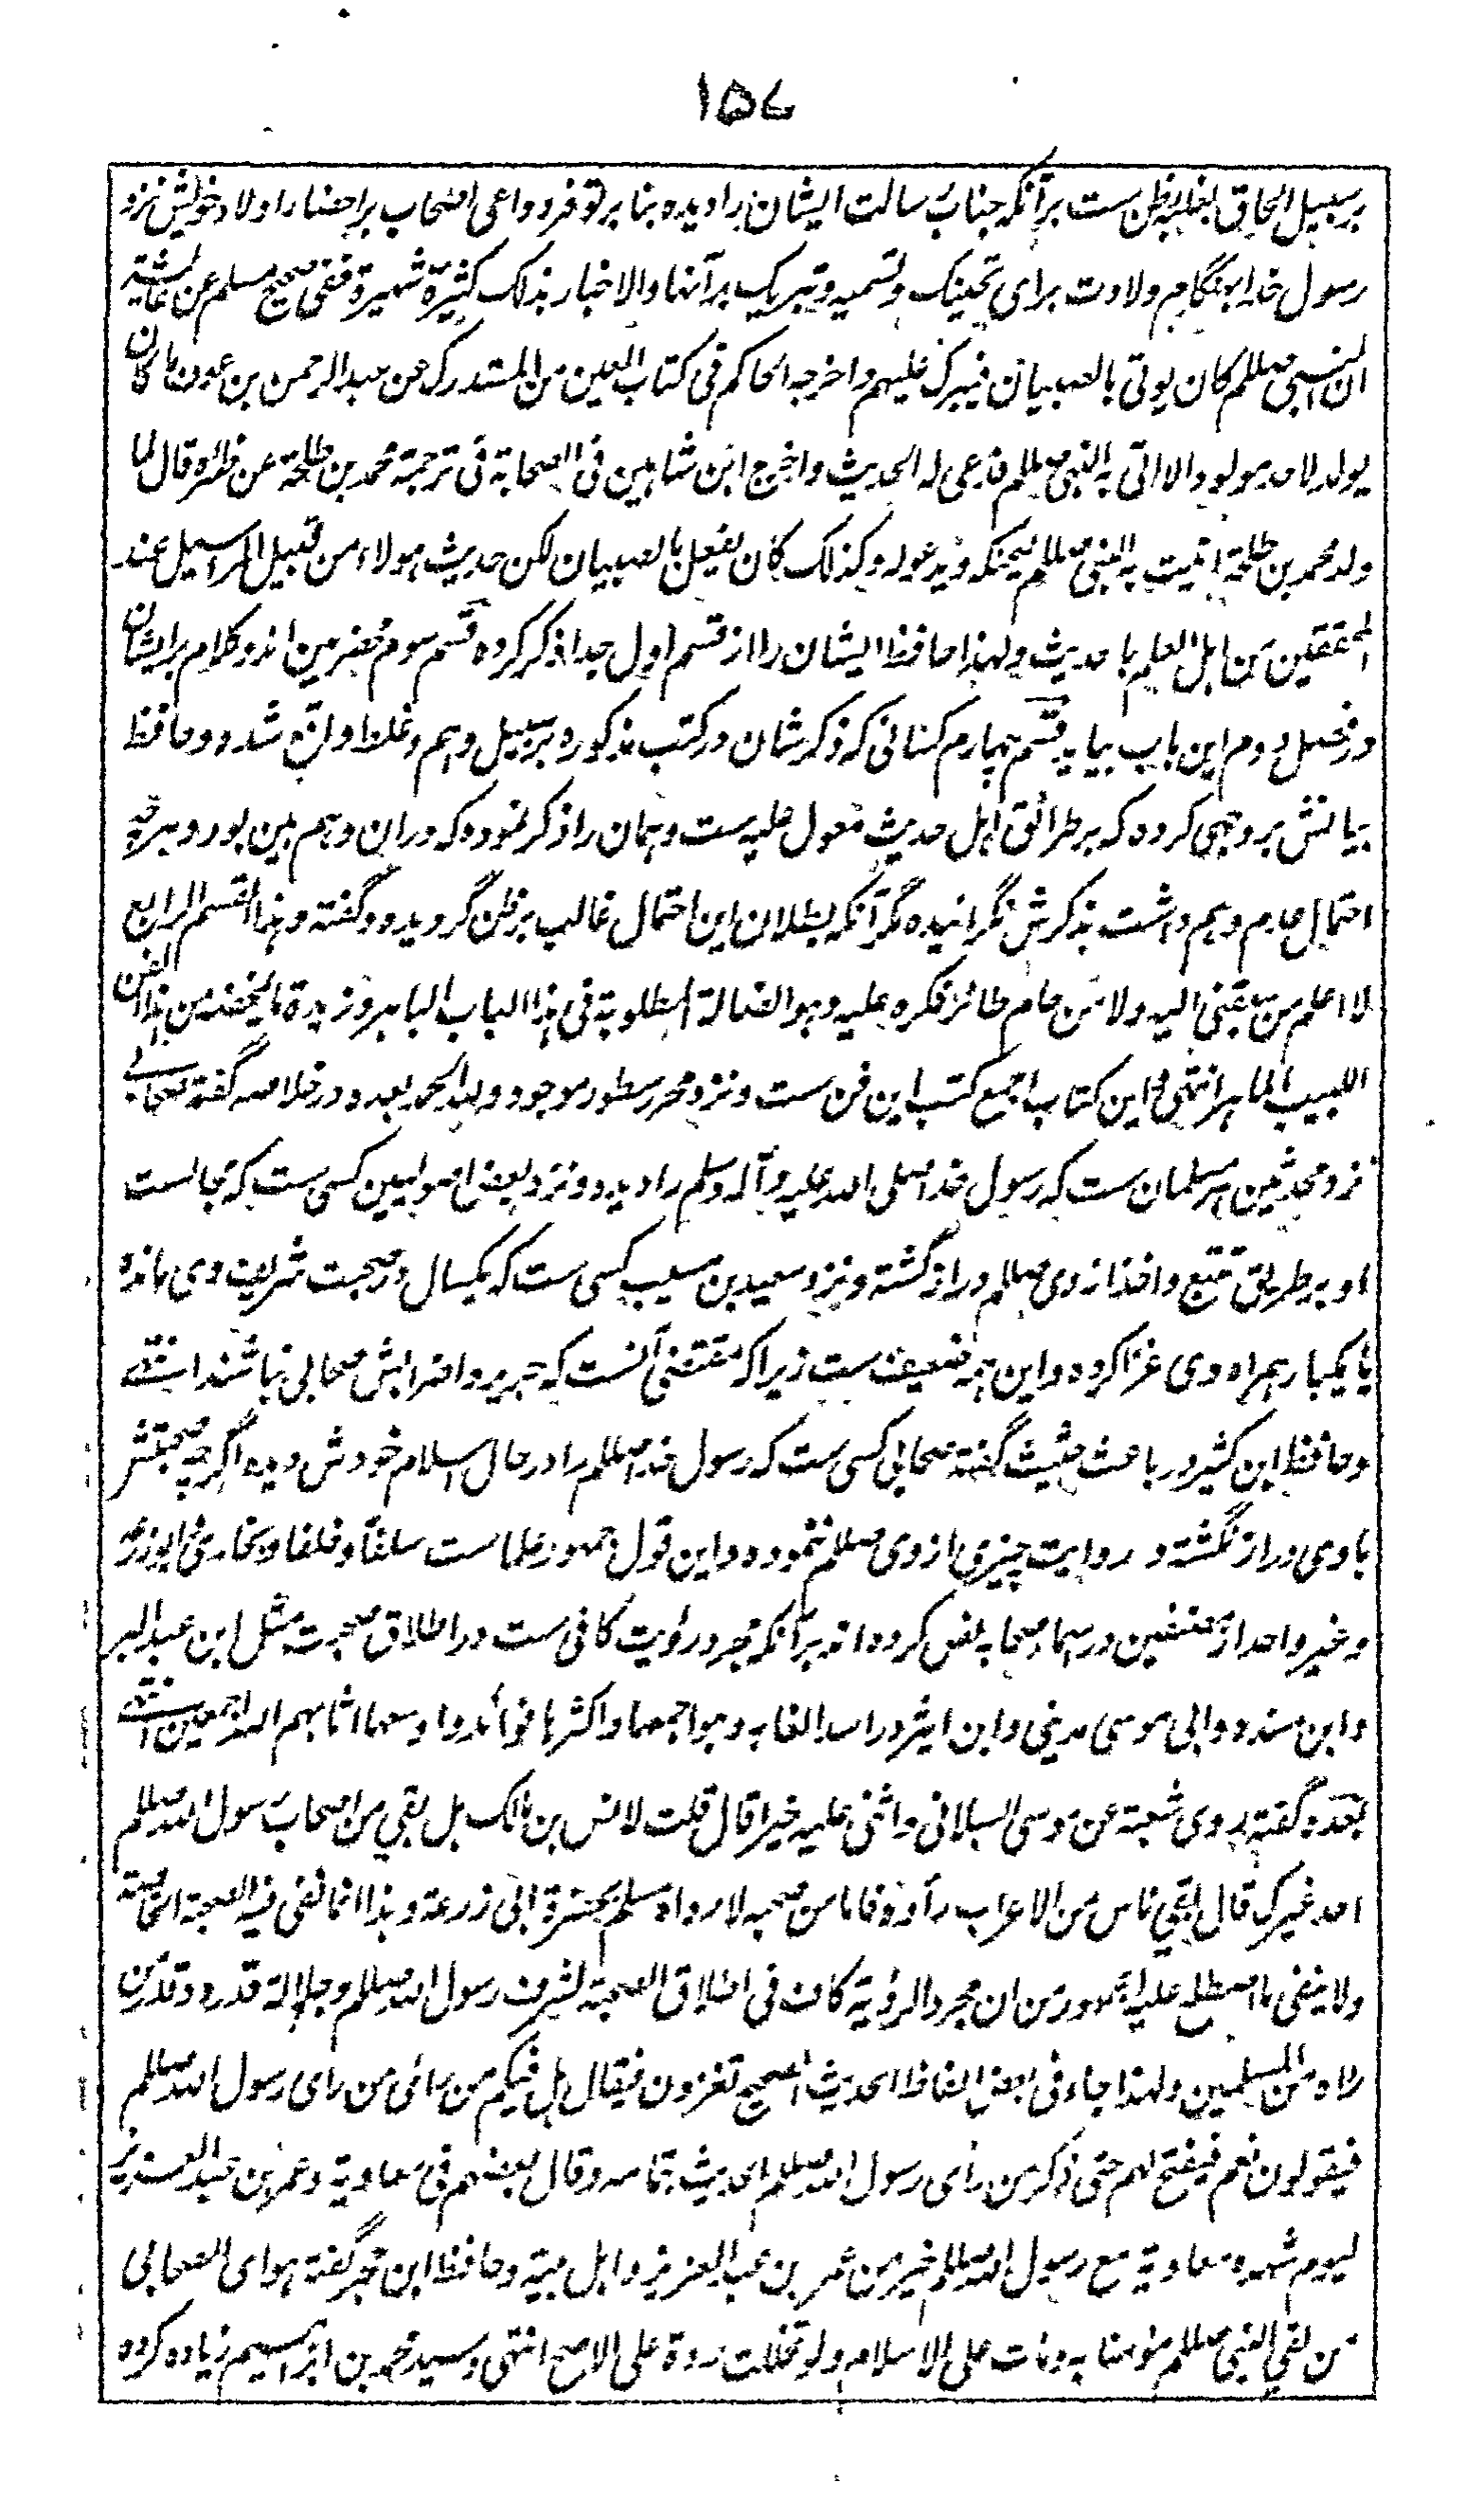 ۱۵۷
بر سبیل الحاق بغلبه ظن ست بر آنکه جناب رسالت ایشان را دیده بنا بر توفر دواعی اصحاب بر احضار اولاد خویش نزد
رسول خدا بهنگام ولادت برای تحنیک و تسمیه و تبریک بر آنها والاخبار بذلک کثیرة شهیرة ففی صحیح مسلم عن عائشة
ان النبی صللم کان یوتی بالصبیان فیبرک علیهم واخرجه الحاکم فی کتاب الفتن من المستدرک عن عبد الرحمن بن عوف ما کان
یولد لاحد مولود الا اتی به النبی صللم فدعی له الحدیث واخرج ابن شاهین فی الصحابة فی ترجمة محمد بن طلحة عن ظئره قال لما
ولد محمد بن طلحة اتیت به النبی صللم لیحنکه ویدعو له وکذلک کان یفعل بالصبیان لکن حدیث هولاء من قبیل المراسیل عند
المحققین من اهل العلم با حدیث ولهذا حافظ ایشان را از قسم اول جدا ذکر کرده قسم سوم مخضرمین اند وکلام بر ایشان
در فصل دوم این باب بیاید قسم چهارم کسانی که ذکر شان در کتب مذکوره بر سبیل وهم وغلط واقع شده وحافظ
بیانش بر وجهی کرده که بر طرائق اهل حدیث معول علیه ست وهمان را ذکر نموده که دران وهم بین بود وهرچه
احتمال عدم وهم داشت بذکرش نگرائیده مگر آنکه بطلان این احتمال غالب بر ظن گردیده وگفته وهذا القسم الرابع
لا اعلم من سبقنی الیه ولا من حام طائر فکره علیه وهو الضالة المطلوبة فی هذا الباب الباهر وزبدة ما یمخضه من هذا الفن
اللبیب الماهر انتهی این کتاب اجمع کتب این فن ست ونزد محرر سطور موجود ولله الحمد بعده در خلاصه گفته صحابی
نزد محدثین هر مسلمان ست که رسول خدا صلی الله علیه وآله وسلم را دیده ونزد بعض اصولیین کسی ست که مجالست
او بر طریق تتبع واخذ از وی صللم دراز گشته ونزد سعید بن مسیب کسی ست که یکسال در صحبت شریف وی مانده
یا یکبار همراه وی غزا کرده واین همه ضعیف ست زیرا که مقتضی آنست که جریر واضرابش صحابی نباشند انتهی
وحافظ ابن کثیر در باعث حثیث گفته صحابی کسی ست که رسول خدا صللم را در حال اسلام خودش دیده اگرچه صحبتش
با وی دراز نگشته و روایت چیزی از وی صللم ننموده واین قول جمهور علماست سلفا وخلفا وبخاری وابوزرعه
وغیر واحد از مصنفین در اسماء صحابه نص کرده اند بر آنکه مجرد رؤیت کافی ست در اطلاق صحبت مثل ابن عبد البر
وابن منده وابی موسی مدینی وابن اثیر در اسد الغابه وهو اجمعها واکثرها فوائد واوسعها اثابهم الله اجمعین انتهی
بعده گفته روی شعبة عن موسی السبلانی واثنی علیه خیرا قال قلت لانس بن مالک هل بقی من اصحاب رسول الله صللم
احد غیرک قال بقی ناس من الاعراب رأوه فاما من صحبه لا رواه مسلم بحضرة ابی زرعة وهذا انما نفی فیه الصحبة الخاصة
ولا ینفی ما اصطلح علیه الجمهور من ان مجرد الرؤیة کاف فی اطلاق الصحبة لشرف رسول الله صللم وجلالة قدره وقدر من
رآه من المسلمین ولهذا جاء فی بعض الفاظ الحدیث الصحیح تغزون فیقال هل فیکم من رائی من رای رسول الله صللم
فیقولون نعم فیفتح لهم حتی ذکر من رأی رسول الله صللم الحدیث بتمامه وقال بعضهم فی معاویة وعمر بن عبد العزیز
لیوم شهده معاویة مع رسول الله صللم خیر من عمر بن عبد العزیز واهل بیته وحافظ ابن حجر گفته هو ای الصحابی
من لقی النبی صللم مؤمنا به ومات علی الاسلام ولو تخللت ردة علی الاصح انتهی وسید محمد بن ابراهیم زیاده کرده